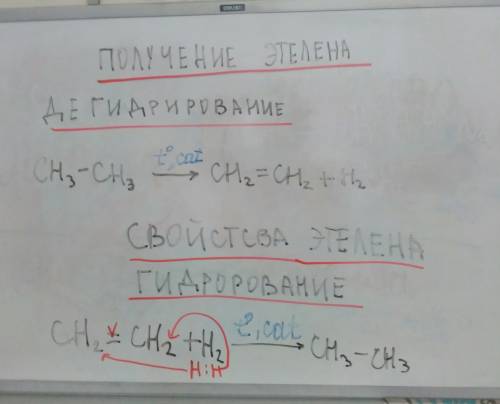 ПОЛУЧЕНИЕ ЭТЕЛЕНА
ДЕГИДРИРОВАНИЕ
CH₃-CH₃ t°,cat → CH₂=CH₂+H₂
СВОЙСТСВА ЭТЕЛЕНА
ГИДРОРОВАНИЕ
CH₂=CH₂+H₂ t°,cat → CH₃-CH₃
H:H